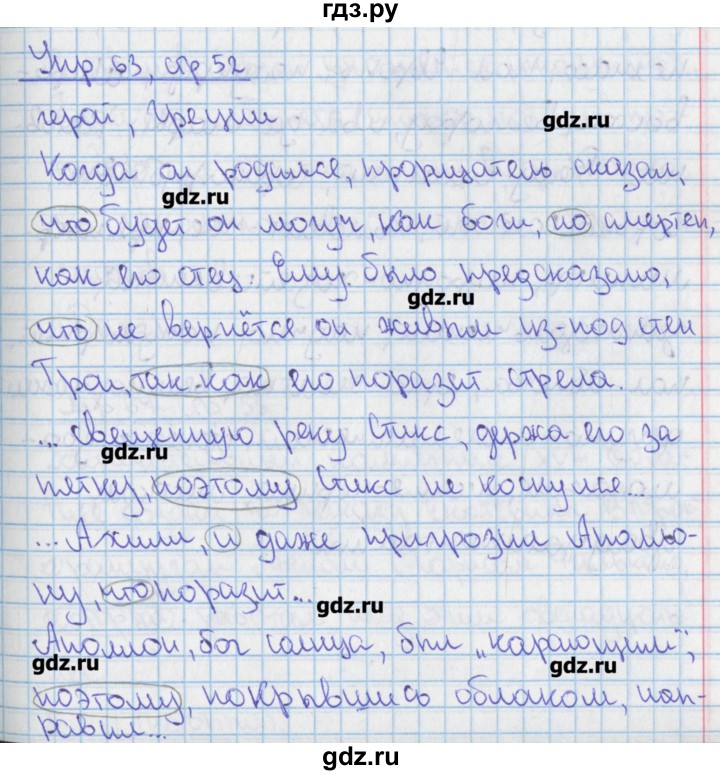 гдз.ру
Упр 63, стр 52
герой, Греции
gdz.ru
Когда он родился, прорицатель сказал,
gdz.ru
что будет он могуч, как боги, но смертен,
как его отец. Ему было предсказано,
gdz.ru
что не вернётся он живым из-под стен
Трои, так как его поразит стрела.
... Священную реку Стикс, держа его за
gdz.ru
пятку, поэтому Стикс не коснулся...
... Ахилл, и даже пригрозил Аполло-
ну, что поразит...
gdz.ru
Аполлон, бог солнца, был „карающим",
gdz.ru
gdz.ru
поэтому, покрывшись облаком, нап-
равил...
gdz.ru